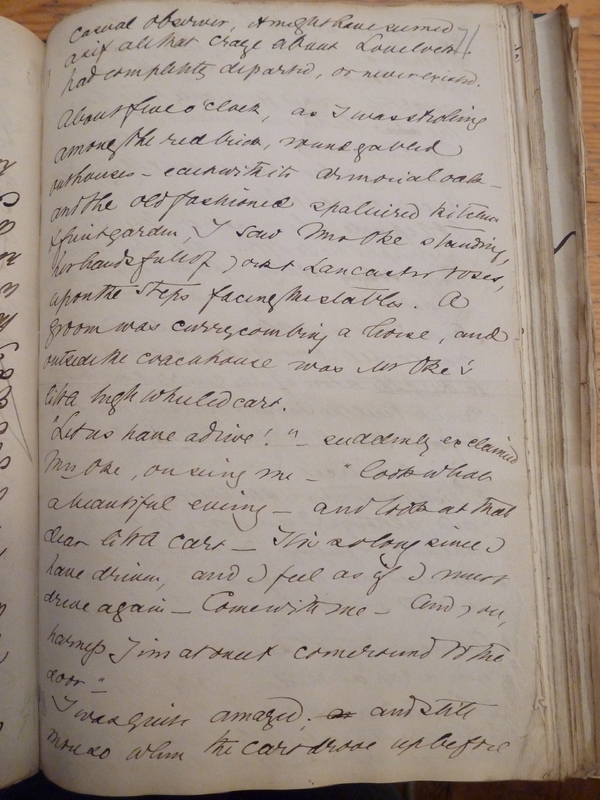 casual observer, it might have seemed
as if all that craze about Lovelock
had completely departed, or never existed.
About five o'clock, as I was strolling
among the red brick, round gabled
outhouses – each with its armorial oak –
and the old fashioned spaliered kitchen
& fruit garden, I saw Mrs Oke standing,
her hands full of York & Lancaster roses,
upon the steps facing the stables. A
groom was currycombing a horse, and
outside the coachouse was Mr Oke's
little high wheeled cart.
"Let us have a drive!" – suddenly exclaimed
Mrs Oke, on seeing me – "look what
a beautiful evening – and look at that
dear little cart – It is so long since I
have driven, and I feel as if I must
drive again – Come with me – And you,
harness Jim at once & come round to the
door –"
I was quite amazed, and still
more so when the cart drove up before